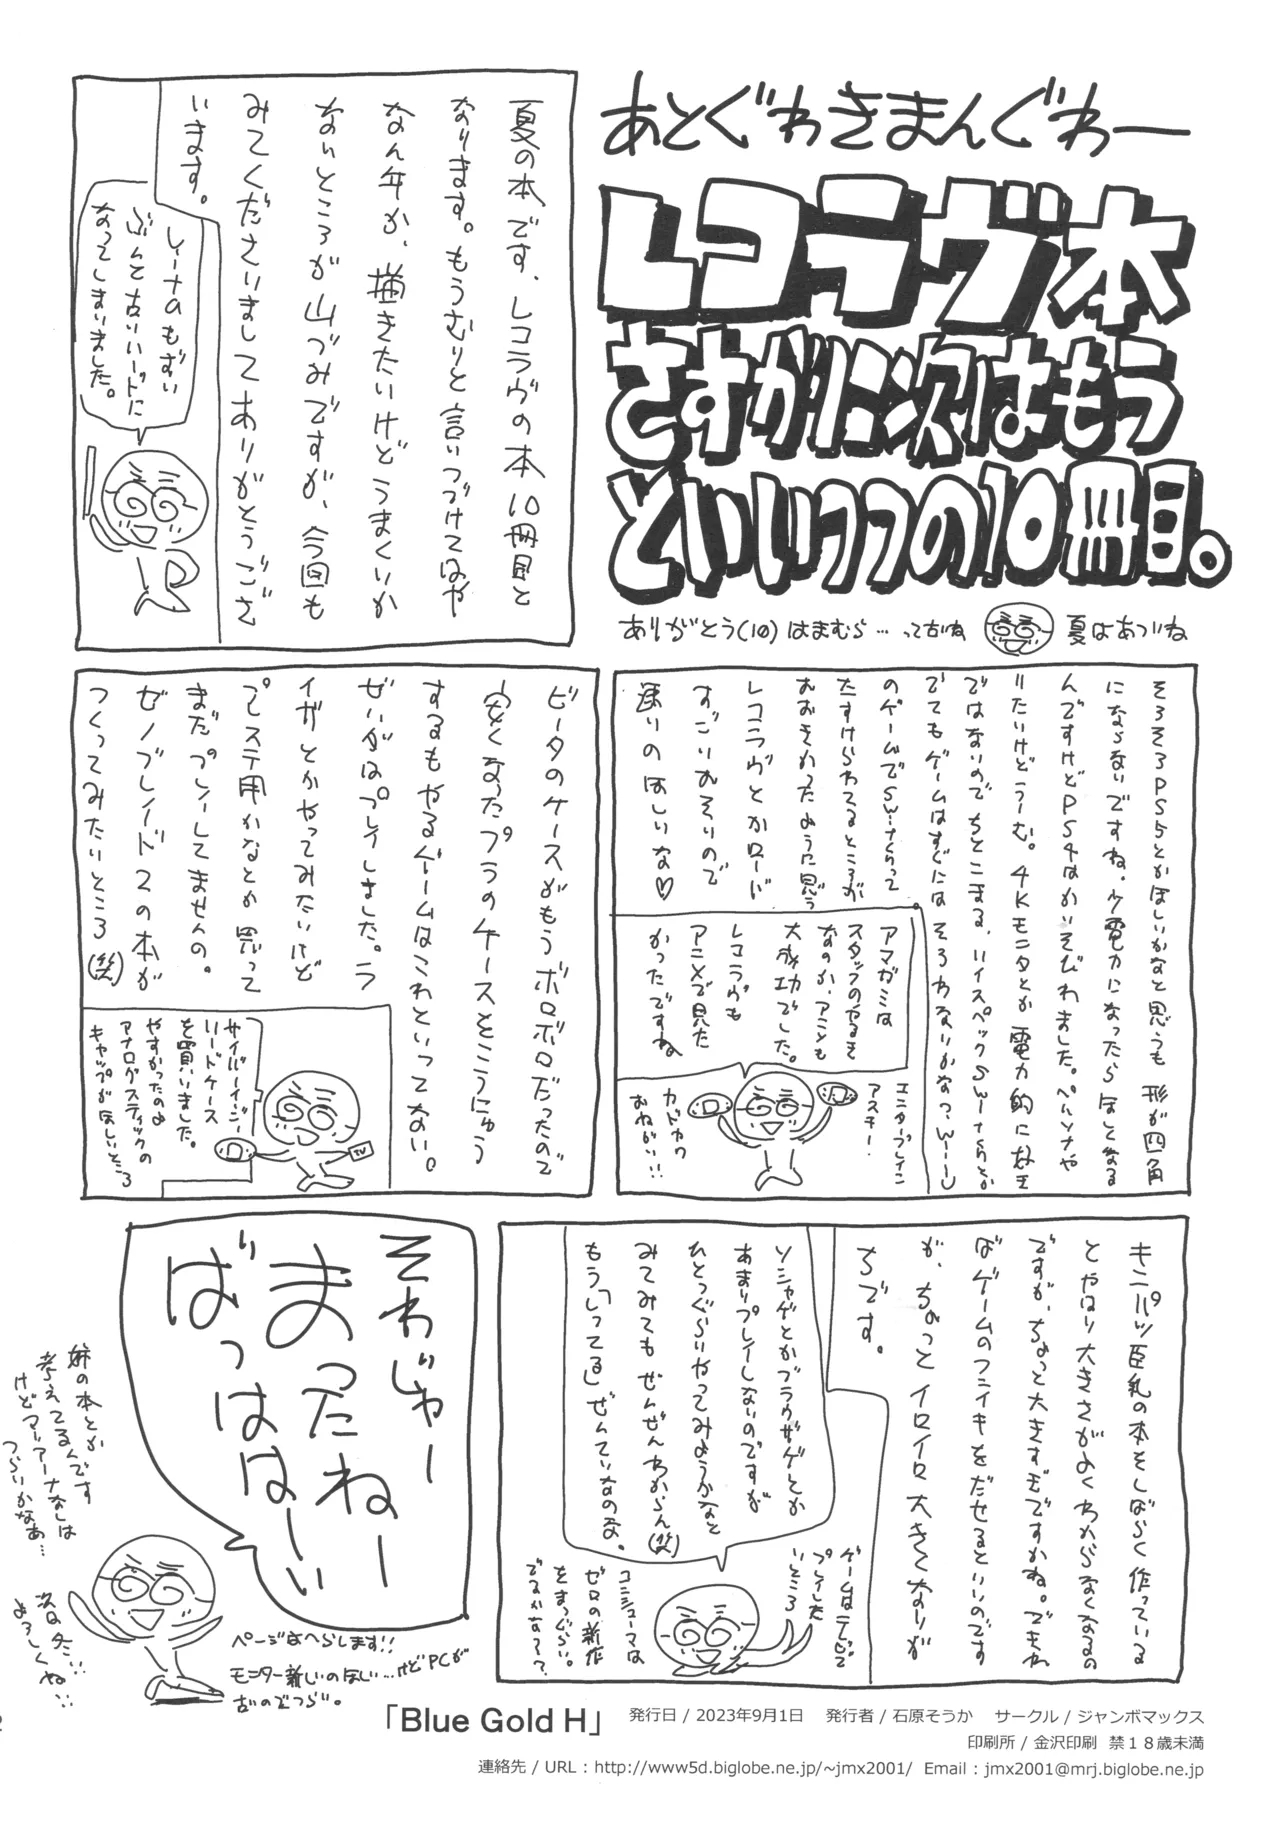 あとぐわきまんぐわー
レコラヴ本
さすがに次はもう
といいつつの10冊目。
ありがとう(10)はまむら…って古いね
夏はあついね
夏の本です、レコラヴの本10冊目と
なります。もうむりと言いつづけてはや
なん年か、描きたいけどうまくいか
ないところが山づみですが、今回も
みてくださいましてありがとうござ
います。
レーナのもずい
ぶんと古いハードに
なってしまいました。
そろそろPS5とかほしいかなと思うも 形が四角
にならないですね。少電力になったらほしくなる
んですけどPS4はかいそびれました。ペルソナや
りたいけどうーむ。4Kモニタとか電力的になま
ではないのでちとこまる、ハイスペックSwitchとか
でてもゲームはすぐには そろわないかなっ、Wーし
のゲームでSwitchって
たすけられてるところが
おおきかったように思う
レコラヴとかロード
すごいおそいので
速いのほしいな♡
アマガミは
スタッフのやるき
なのか、アニメも
大成功でした。
レコラヴも
アニメで見た
かったですね
エンタープレイン
アスキー。
カドカワ
おねがい!!
ビータのケースがもうボロボロだったので
安くなったプラのケースをこうにゅう
するもやるゲームはこれといってない。
ぜいがはプレイしました。ラ
イザとかやってみたいけど
プレステ用かなとか思って
まだプレーしてませんの。
ゼノブレイド2の本が
つくってみたいところ(笑)
サイバーイジー
ハードケース
を買いました。
やすかったのよ
アナログスティックの
キャップがほしいところ
キンパツ巨乳の本をしばらく作っている
とやはり大きさがよくわからなくなるの
ですが、ちょっと大きすぎですかね。でもね
ばゲームのフンイキをだせるといいのです
が、ちょっとイロイロ大きくなりが
ちです。
ソシャゲとかブラウザゲとか
あまりプレイしないのですが
ひとつぐらいやってみようかなと
みてみてもぜんぜんわからん(笑)
もう「いってる」ぜんていなのな。
ゲームはテレビで
プレイしたい
ところ
コンシューマは
ゼロの新作
をまつぐらい。
でるかな??
それじゃー
まったねー
ばっはは〜い
妹の本とか
考えてるんです
けどマリアーナなしは
つらいかなあ…
次は冬!!
よろしくね!!
ページはへらします!!
モニター新しいのほしい…けどPCが
古いのでつらい。
「Blue Gold H」
発行日 / 2023年9月1日 発行者 / 石原そうか サークル / ジャンボマックス
印刷所 / 金沢印刷 禁18歳未満
連絡先 / URL : http://www5d.biglobe.ne.jp/~jmx2001/ Email : jmx2001@mrj.biglobe.ne.jp